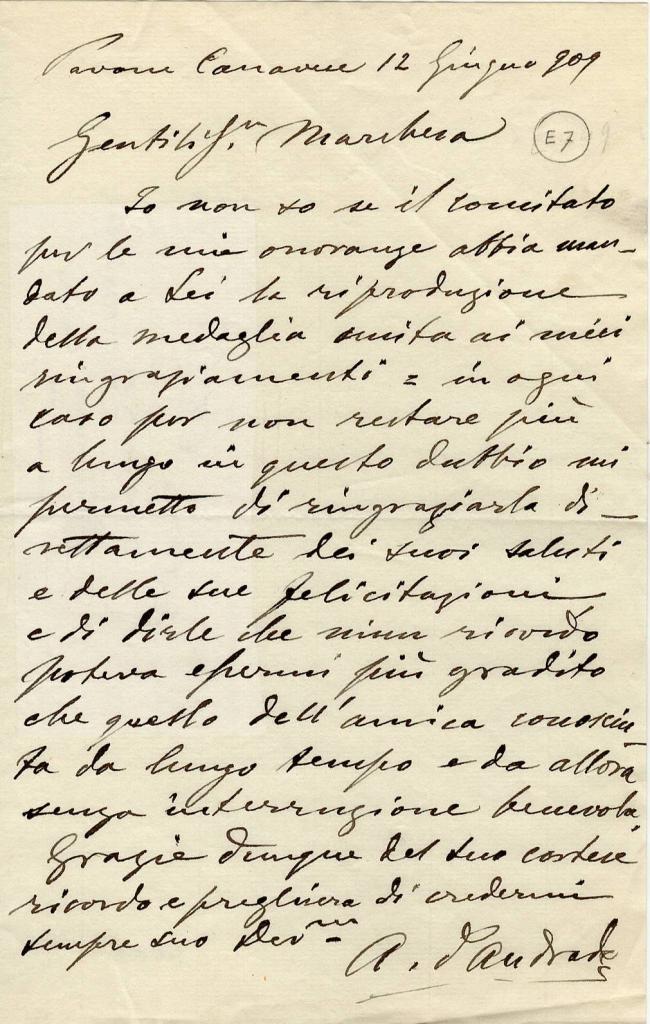 Pavone Canavese 12 Giugno 909
Gentiliss.ma Marchesa
E 7
Io non so se il comitato
per le mie onoranze abbia man_
dato a Lei la riproduzione
della medaglia unita ai miei
ringraziamenti = in ogni
caso per non restare più
a lungo in questo dubbio mi
permetto di ringraziarla di_
rettamente dei suoi saluti
e delle sue felicitazioni
e di dirle che niun ricordo
poteva essermi più gradito
che quello dell'amica conosciu_
ta da lungo tempo e da allora
senza interruzione benevola.
Grazie dunque del suo cortese
ricordo e preghiera di credermi
sempre suo Dev.mo
A. d'Andrade